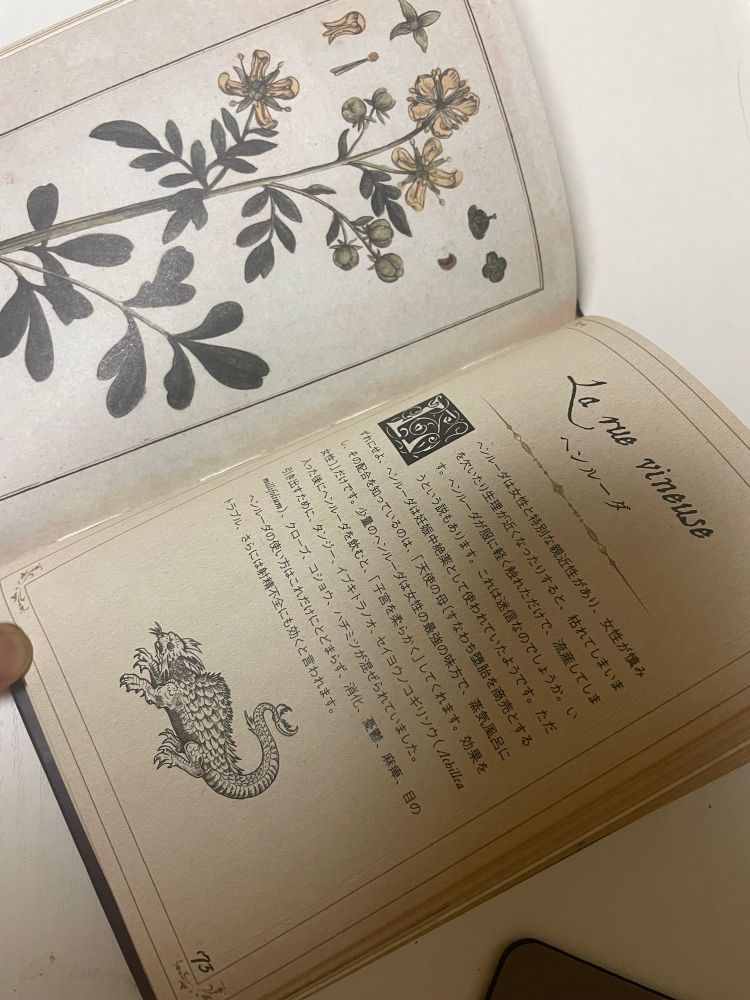 La rue vineuse
ヘンルーダ
ヘンルーダは女性と特別な親近性があり、女性が慎み
を欠いたり生理が近くなったりすると、枯れてしまいま
す。ヘンルーダが服に軽く触れただけで、流産してしま
うという説もあります。これは迷信なのでしょうか。い
ずれにせよ、ヘンルーダは妊娠中絶薬として使われていたようです。ただ
し、その配合を知っているのは、「天使の母（すなわち堕胎を商売とする
女性）」だけです。少量のヘンルーダは女性の最強の味方で、蒸気風呂に
入った後にヘンルーダを飲むと、「子宮を柔らかく」してくれます。効果を
引き出すために、タンジー、イブキトラノオ、セイヨウノコギリソウ（Achillea
millefolium）、クローブ、コショウ、ハチミツが混ぜられていました。
ヘンルーダの使い方はこれだけにとどまらず、消化、憂鬱、麻痺、目の
トラブル、さらには射精不全にも効くと言われます。
73